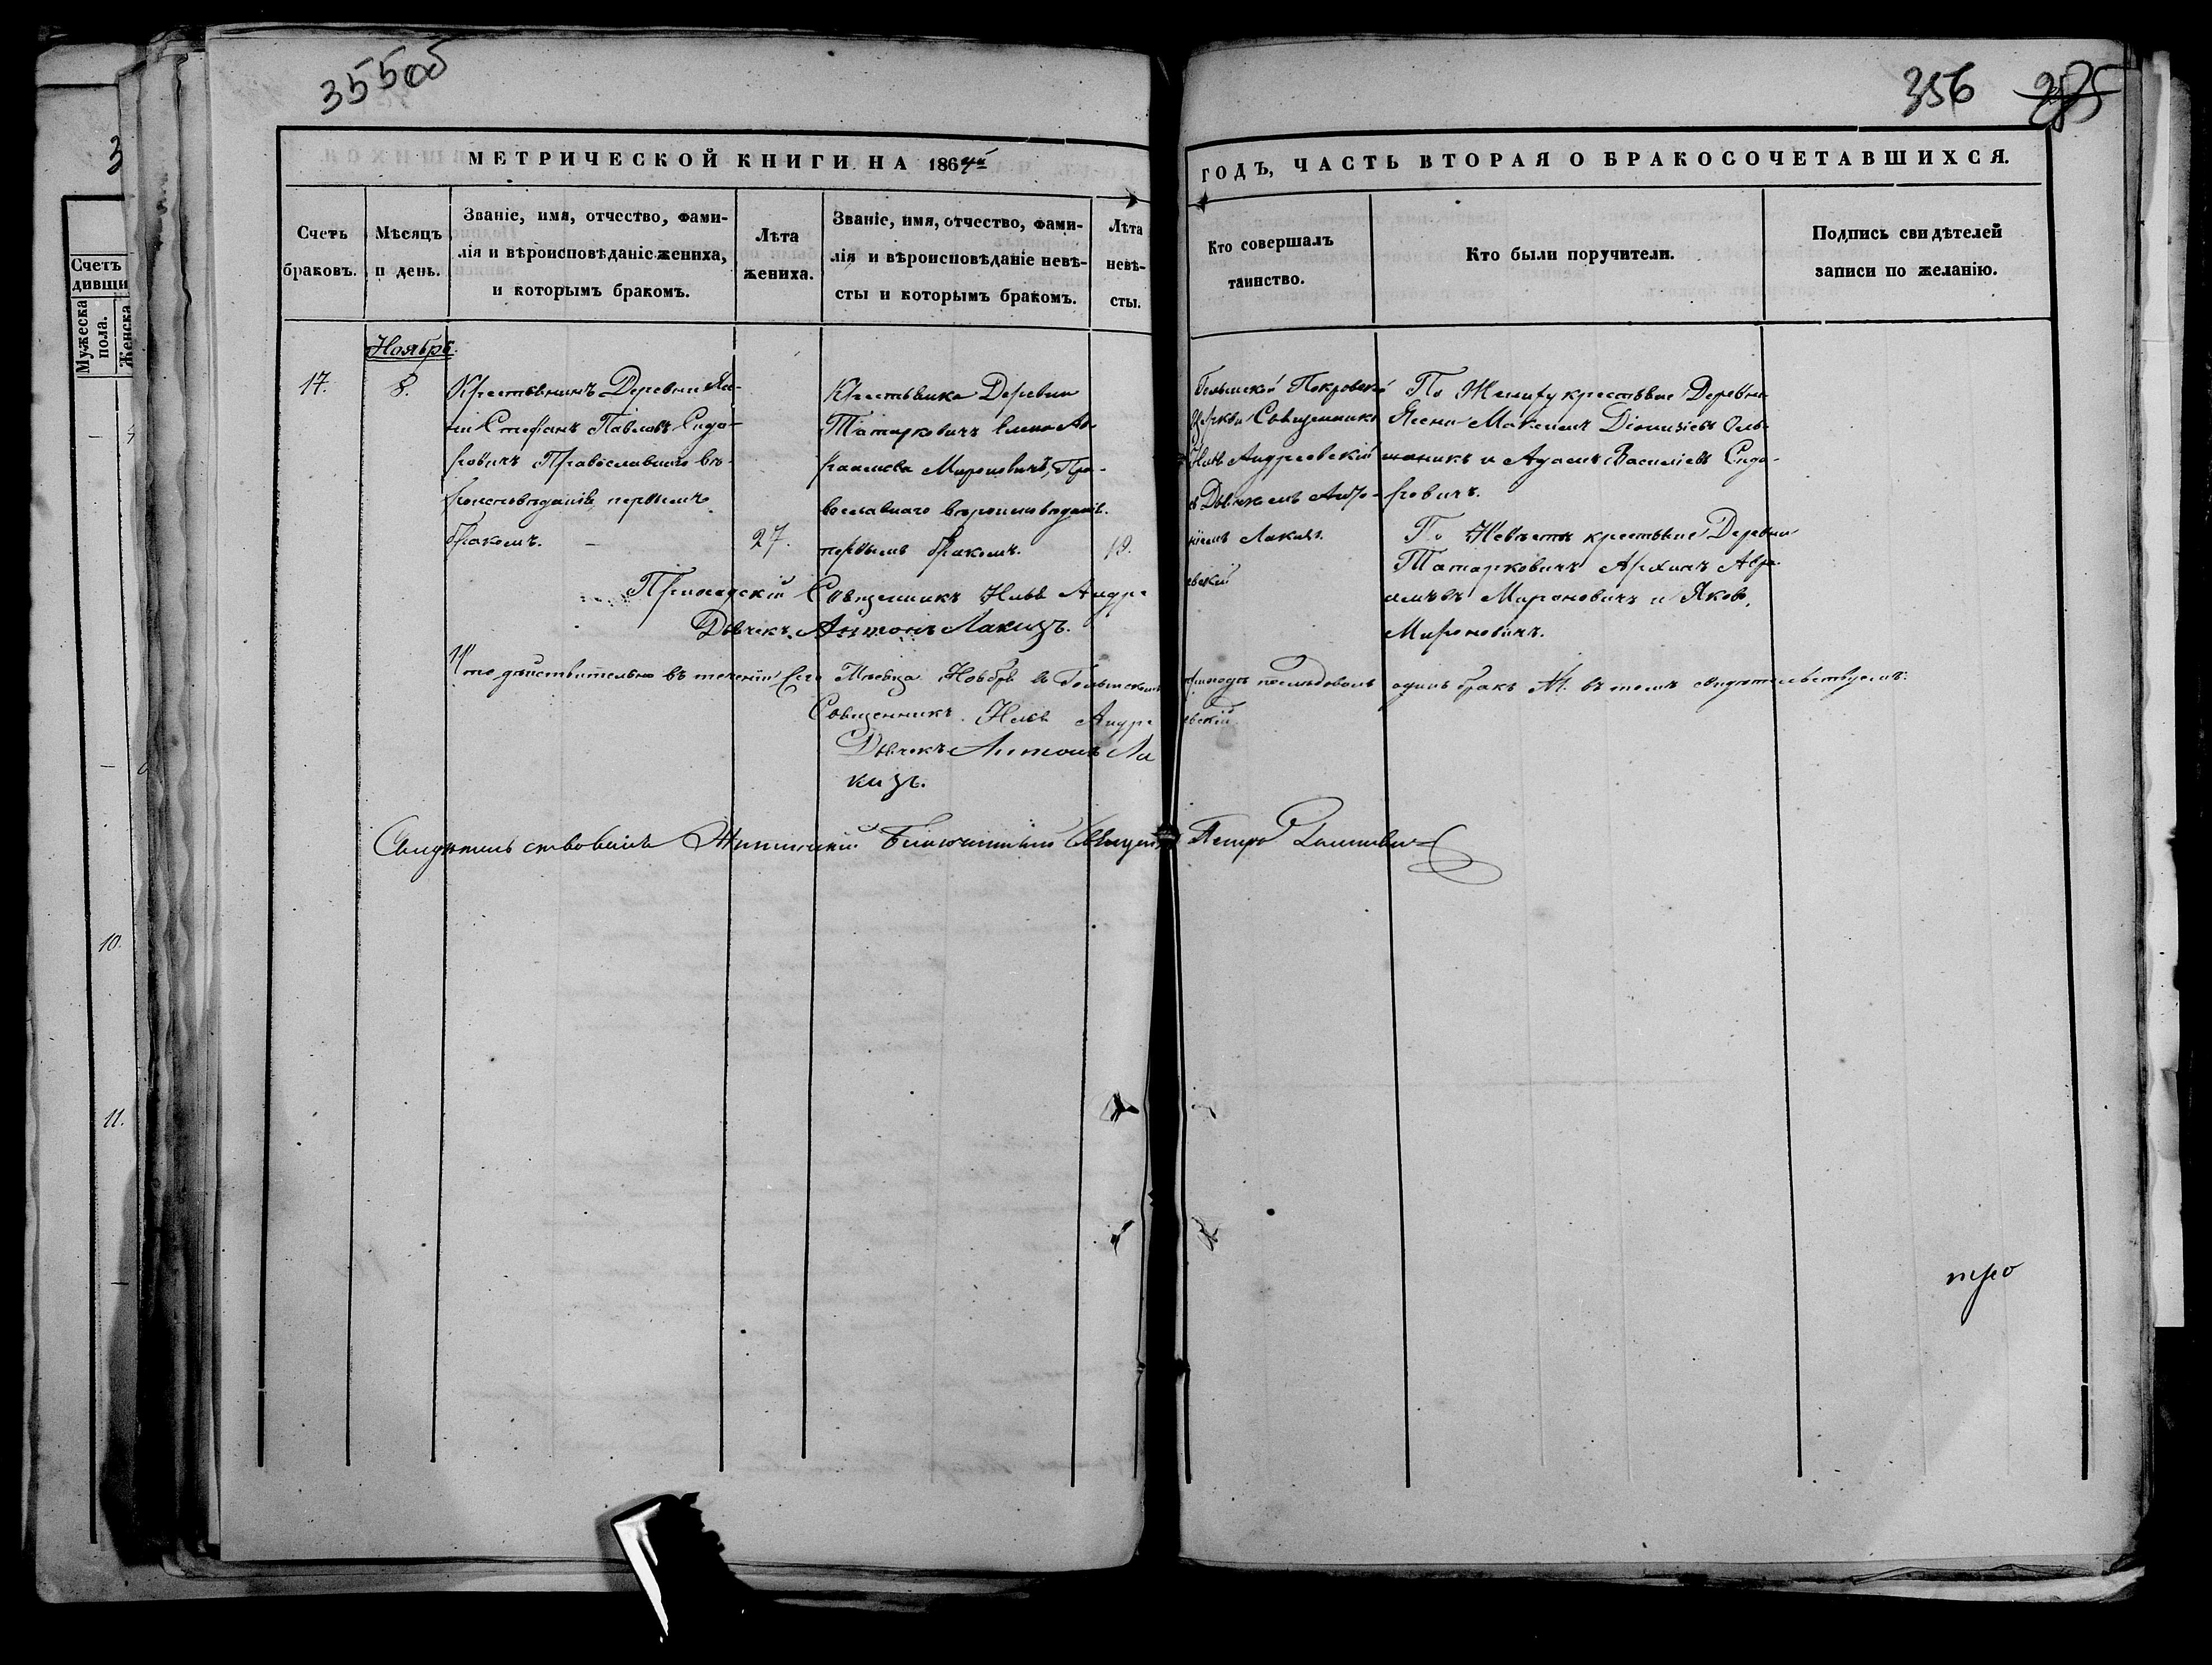 355об
356 285
МЕТРИЧЕСКОЙ КНИГИ НА 1864й
ГОДЪ, ЧАСТЬ ВТОРАЯ О БРАКОСОЧЕТАВШИХСЯ.
Счетъ
браковъ.
Мѣсяцъ
и день.
Званіе, имя, отчество, фами-
лія и вѣроисповѣданіе жениха,
и которымъ бракомъ.
Лѣта
жениха.
Званіе, имя, отчество, фами-
лія и вѣроисповѣданіе невѣ-
сты и которымъ бракомъ.
Лѣта
невѣ-
сты.
Кто совершалъ
таинство.
Кто были поручители.
Подпись свидѣтелей
записи по желанію.
17.
Ноябрь.
8.
Крестьянинъ Деревни Яс-
ни Стефанъ Павловъ Сидо-
ровичъ Православнаго вѣ-
роисповѣданія, первымъ
бракомъ.
27.
Крестьянка Деревни
Татарковичъ Елена Ав-
раамова Мироновичъ, Пра-
вославнаго вѣроисповѣданія.
первымъ бракомъ.
19.
Покровской
Церкви Священникъ
Андреевскій
съ Дьячкомъ Анто-
ніемъ Лакизъ.
По Жениху крестьяне Деревни
Ясени Максимъ Діонизіевъ Оль-
шаникъ и Адамъ Василіевъ Сидо-
ровичъ.
По Невѣстѣ крестьяне Деревни
Татарковичъ Архипъ Авра-
амовъ Мироновичъ и Яковъ
Мироновичъ.
Приходскій Священникъ Андре евскій
Дьячекъ Антонъ Лакизъ.
Что дѣйствительно въ теченіи сего Мѣсяца Ноября въ приходѣ послѣдовалъ одинъ бракъ въ томъ свидѣтельствуемъ:
Священникъ Андре евскій
Дьячекъ Антонъ Ла
кизъ.
Свидѣтельствовалъ Благочинный Священ Петръ
Счетъ
дивши
Мужеска
пола.
Женска
10.
11.